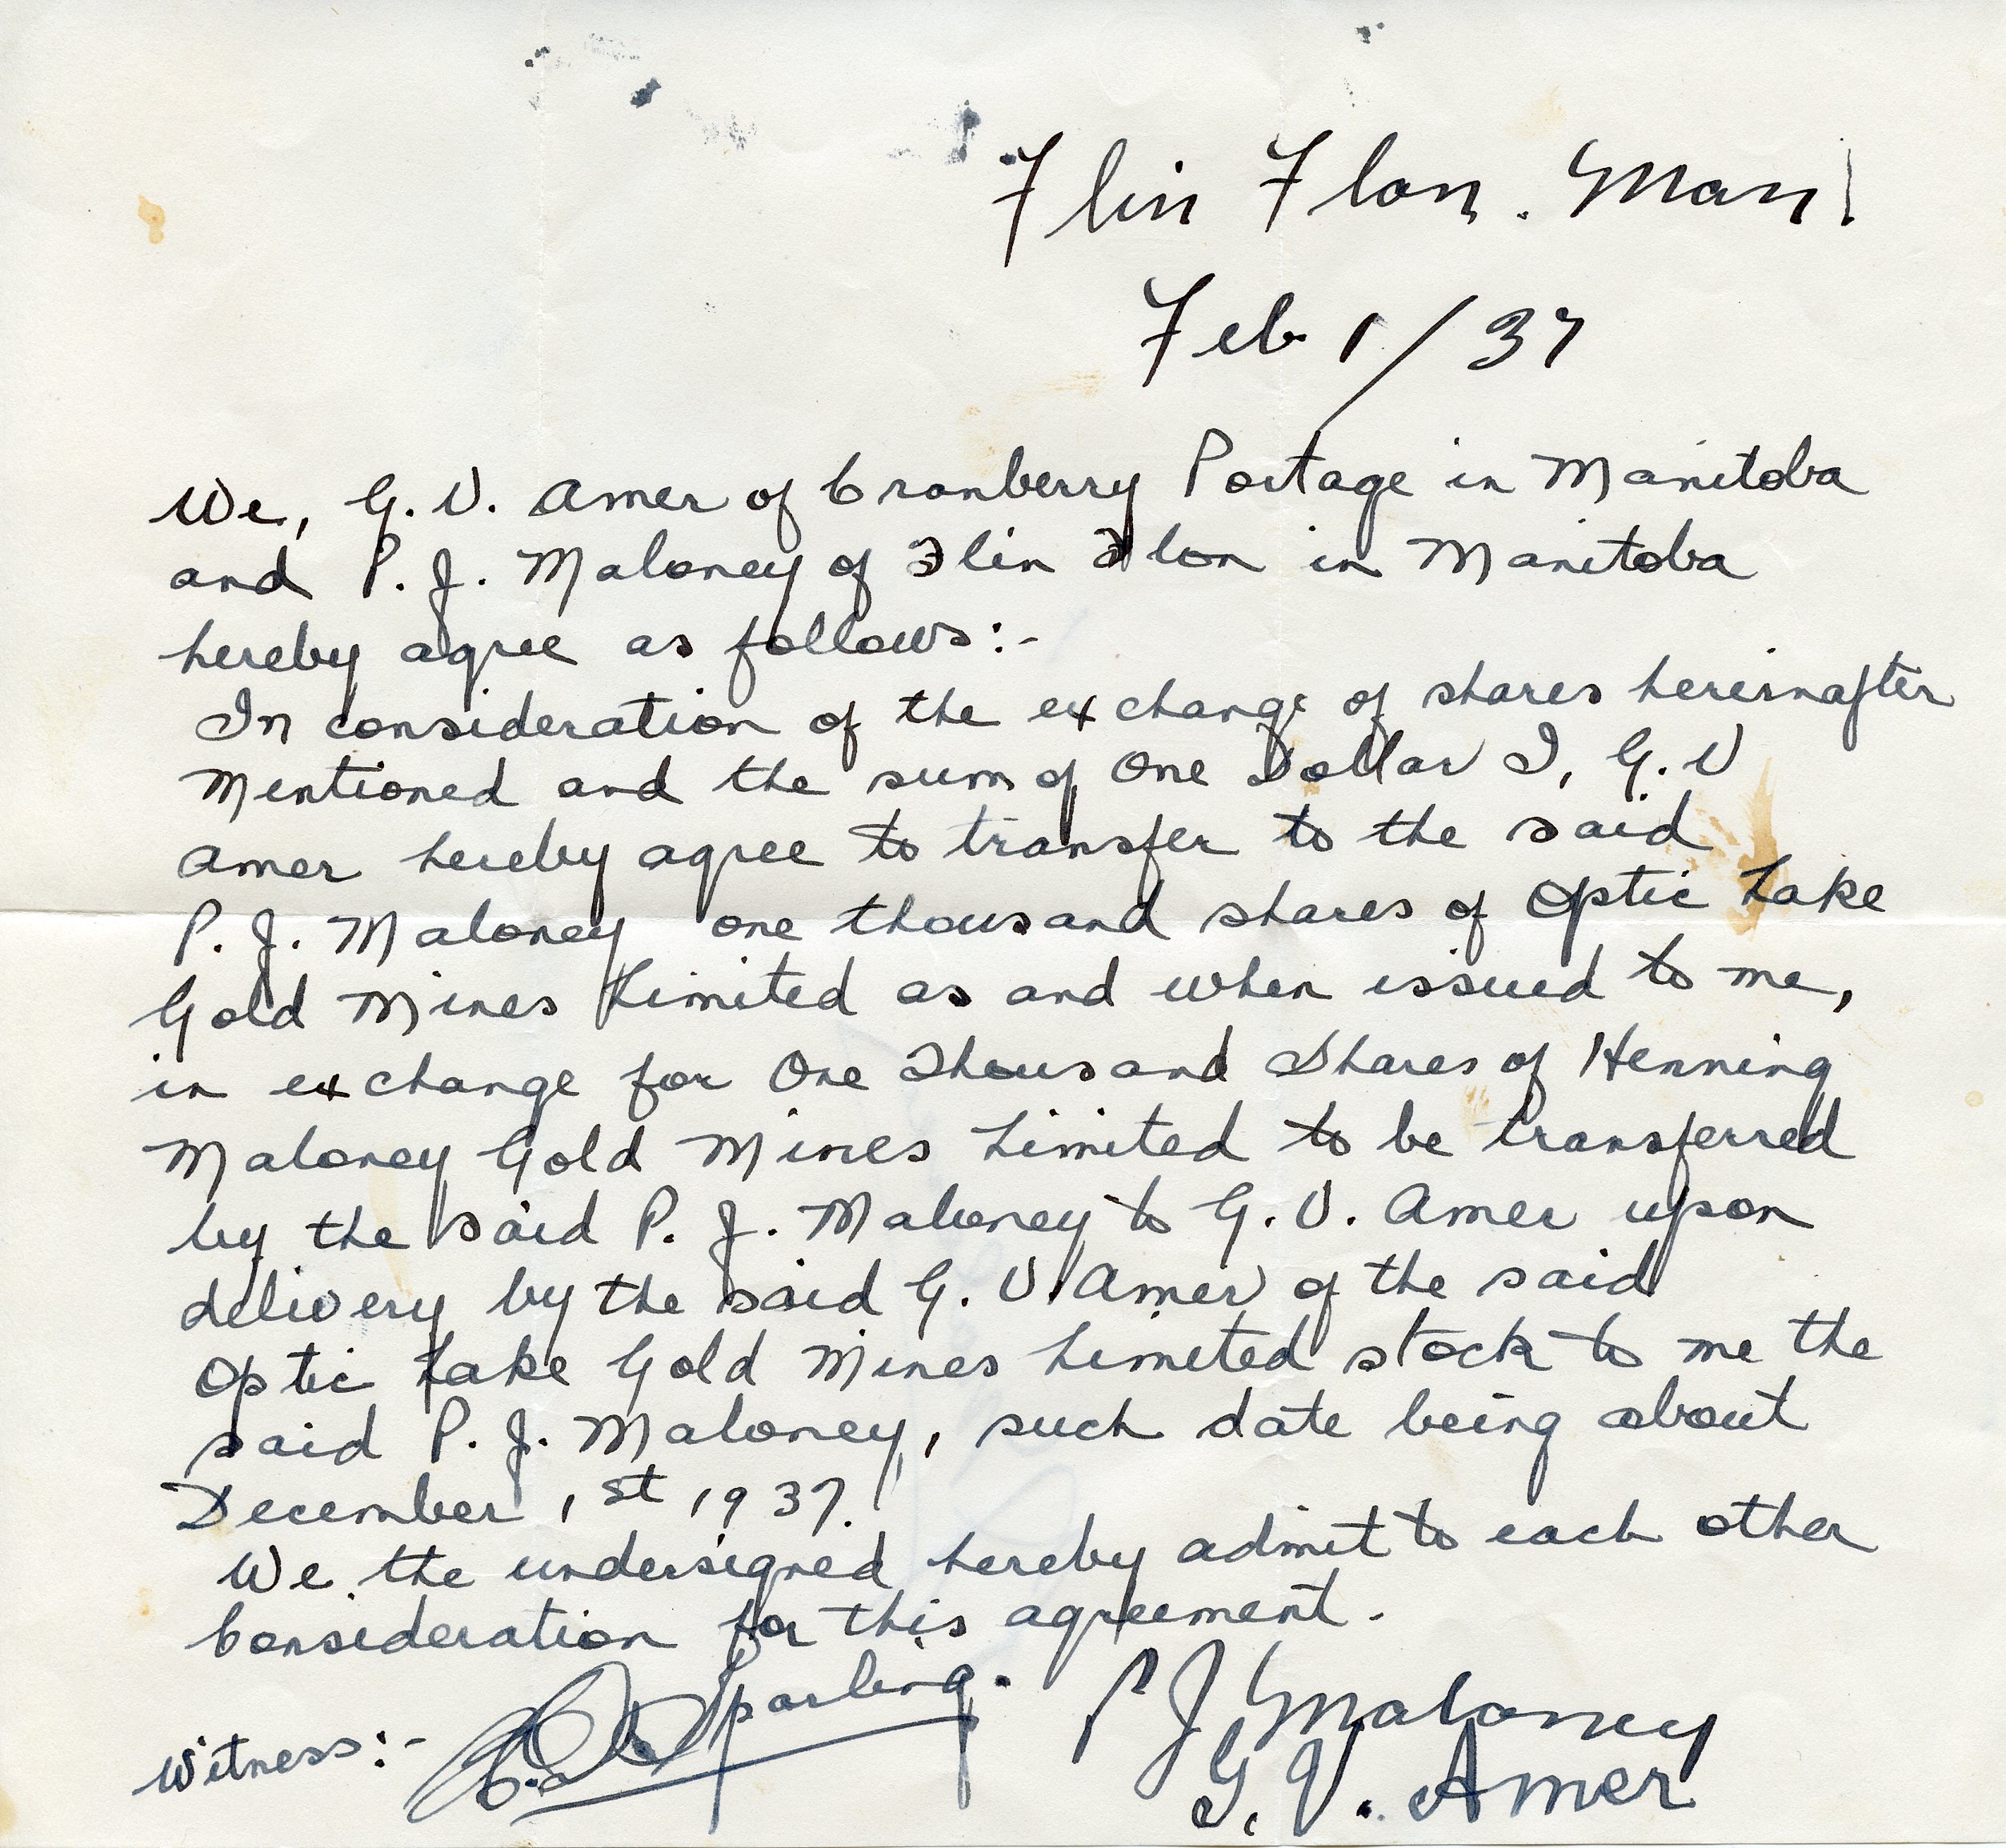 Flin Flon. Man
Feb 1/37
We, G. V. Amer of Cranberry Portage in Manitoba
and P. J. Maloney of Flin Flon in Manitoba
hereby agree as follows:-
In consideration of the exchange of shares hereinafter
Mentioned and the sum of One Dollar I, G. V
Amer hereby agree to transfer to the said
P. J. Maloney one thousand shares of Optic Lake
Gold Mines Limited as and when issued to me,
in exchange for One Thousand Shares of Henning
Maloney Gold Mines Limited to be transferred
by the said P. J. Maloney to G. V. Amer upon
delivery by the said G. V. Amer of the said
Optic Lake Gold Mines Limited stock to me the
said P. J. Maloney, such date being about
December 1st 1937.
We the undersigned hereby admit to each other
Consideration for this agreement.
Sparling.
P J Maloney
Witness:-
G. V. Amer